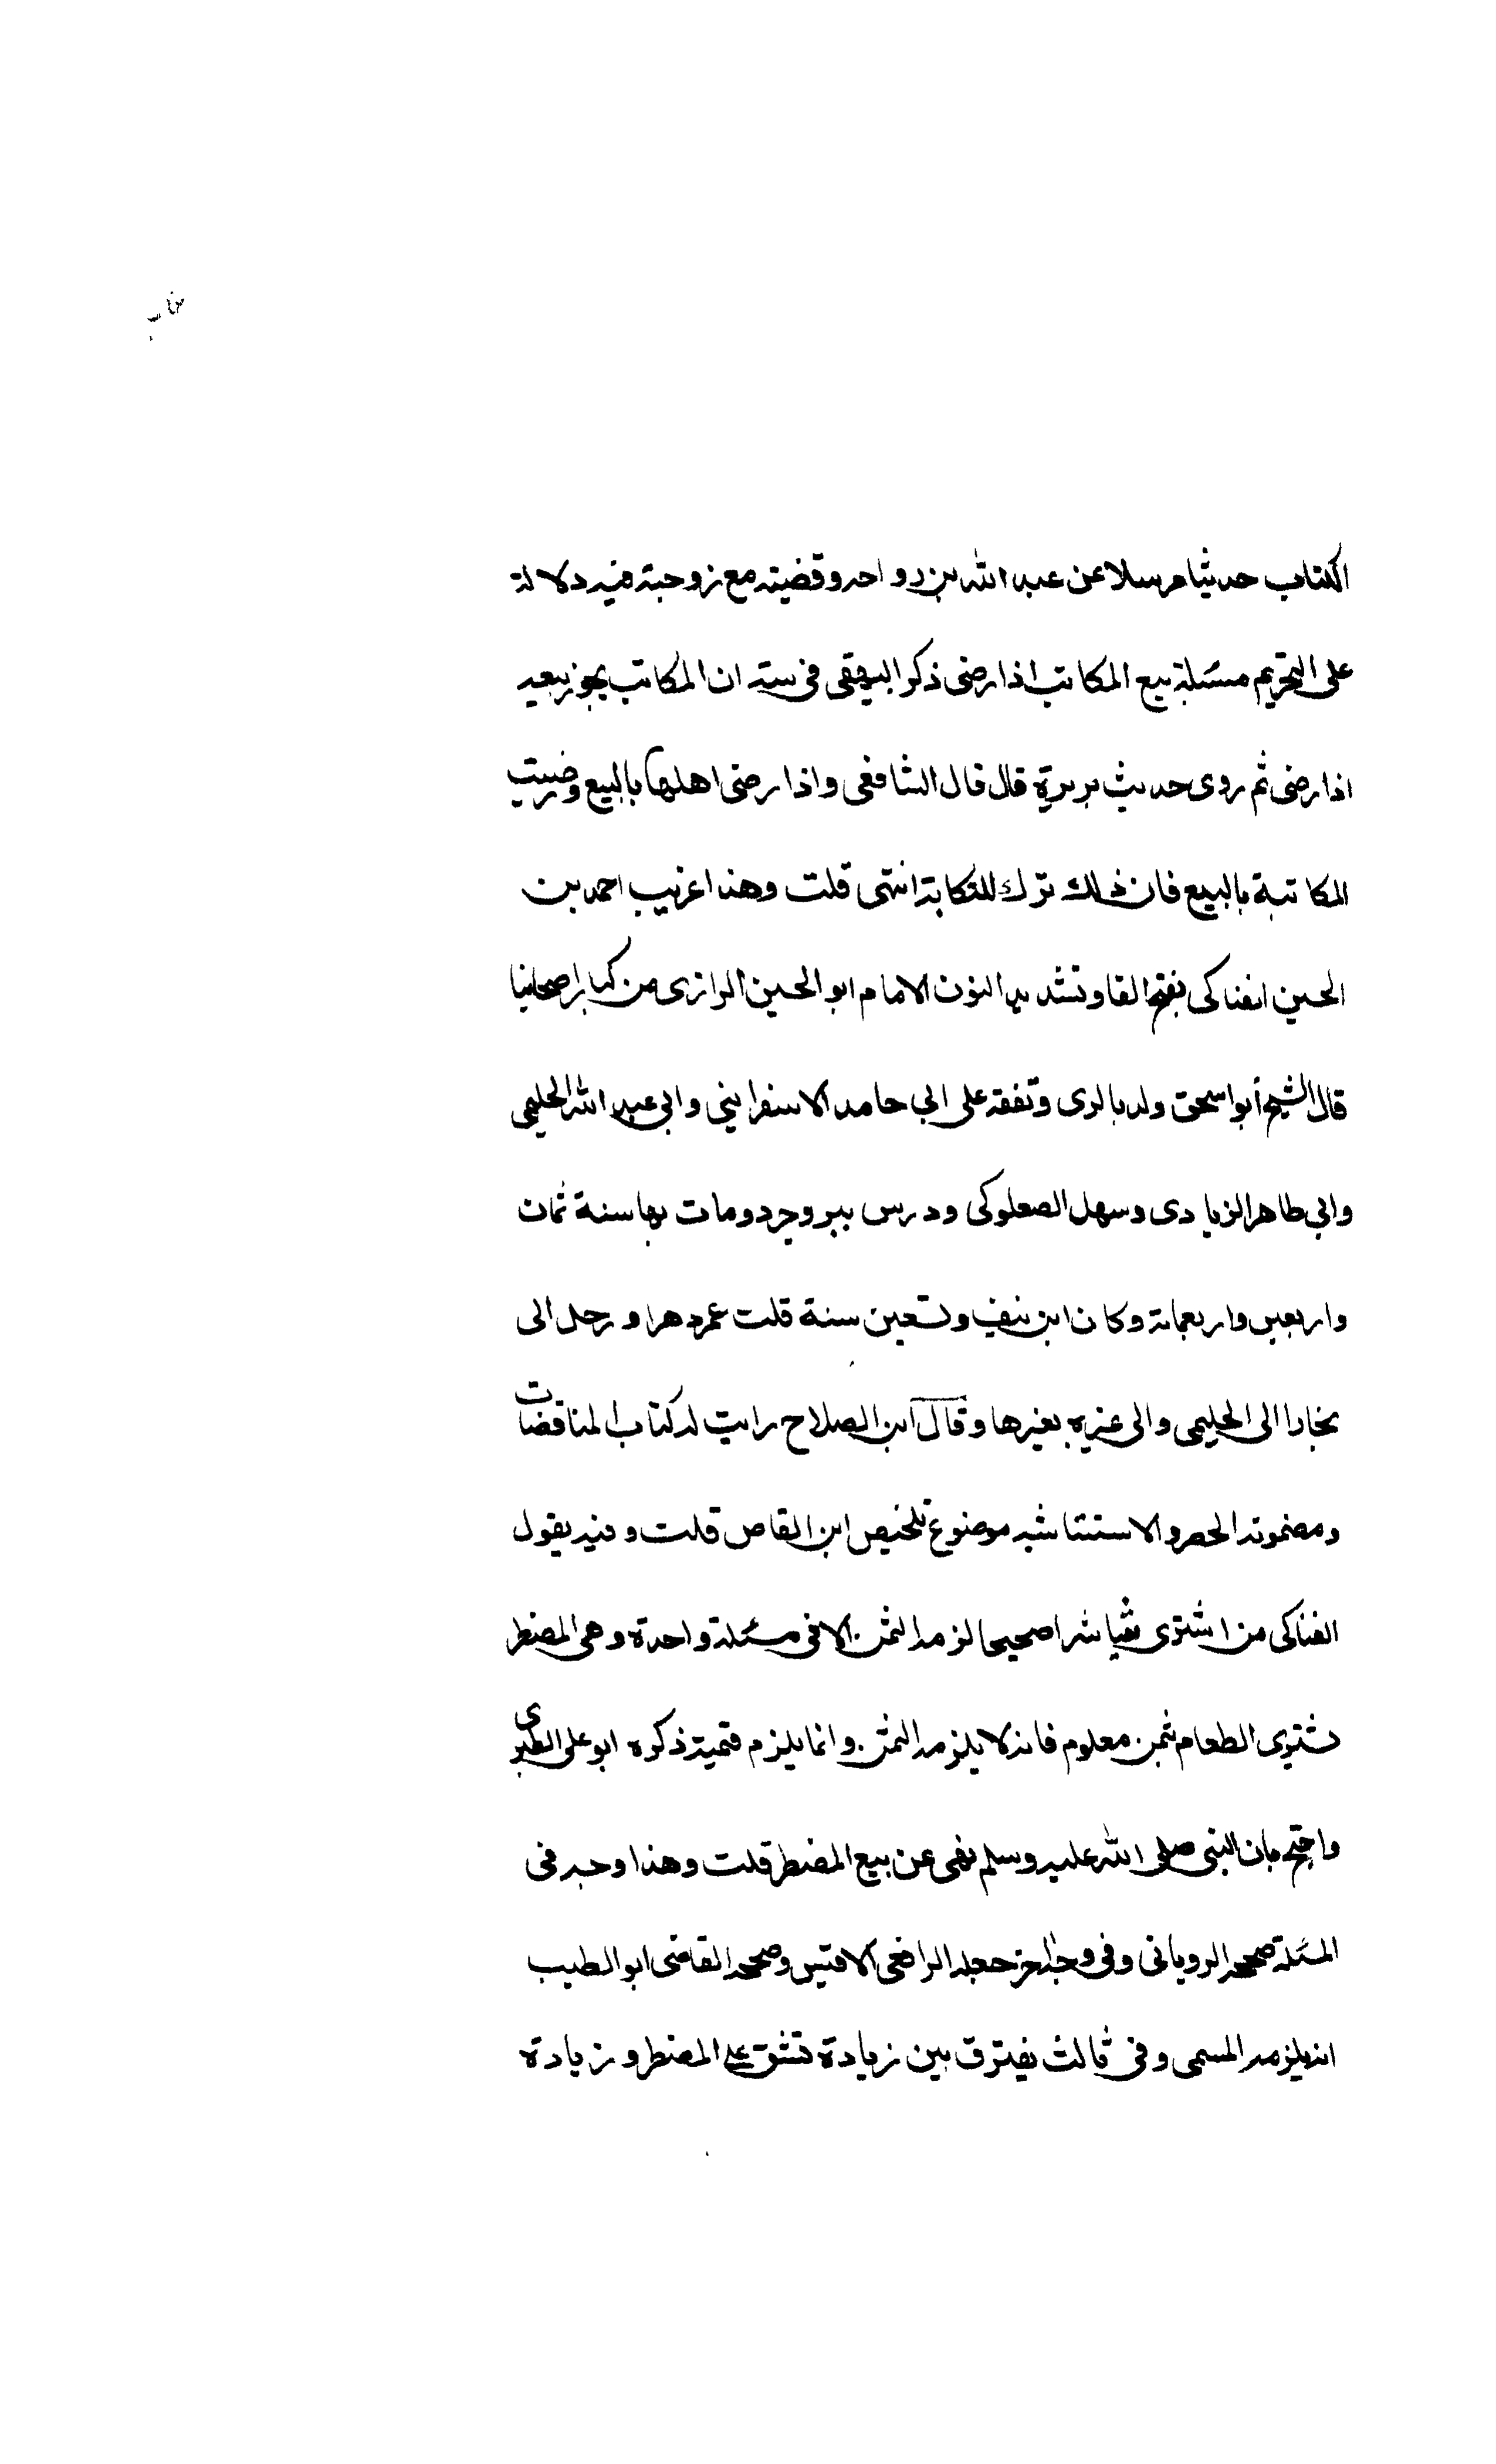 الكتاب حديثا مرسلا عن عبد الله بن رواحه وقضيته مع زوجته فيه دلالة
على التحريم مسئلة بيع المكاتب اذا رضى ذكر البيهقى فى سننه ان المكاتب يجوز بيعه
اذا رضى ثم روى حديث بريرة قال قال الشافعى واذا رضى اهلها بالبيع ورضيت
المكاتبة بالبيع فان ذلك ترك للكتابة انتهى قلت وهذا غريب احمد بن
الحسين الفناكى بفتح الفا وتشديد النون الامام ابو الحسين الرازى من كبار اصحابنا
قال الشيخ أبو اسحق ولد بالرى وتفقه على ابي حامد الاسفرايني وابي عبد الله الحليمى
وابي طاهر الزيادى وسهل الصعلوكى ودرس ببروجرد ومات بها سنة ثمان
واربعين واربعمائة وكان ابن نيف وتسعين سنة قلت عمر دهرا ورحل الى
بخارا الى الحليمى والى غيره بغيرها وقال ابن الصلاح رايت له كتاب المناقضات
ومضمونه الحصر والاستثنا شبه موضوع تلخيص ابن القاص قلت وفيه يقول
الفناكى من اشترى شيا شرا صحيحا لزمه الثمن الا فى مسئلة واحدة وهى المضطر
يشترى الطعام بثمن معلوم فانه لا يلزمه الثمن وانما يلزم قيمته ذكره ابو على الطبرى
واحتج بان النبى صلى الله عليه وسلم نهى عن بيع المضطر قلت وهذا وجه فى
المسئلة صححه الرويانى وفى وجه اخر جعله الرافعى الاقيس وصححه القاضى ابو الطيب
انه يلزمه المسمى وفى ثالث يفترق بين زيادة تشق على المضطر وزيادة